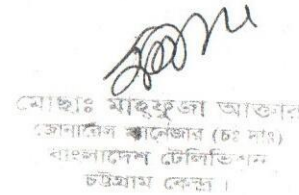 মোছাঃ মাহফুজা আক্তার
জেনারেল ম্যানেজার (চঃ দাঃ)
বাংলাদেশ টেলিভিশন
চট্টগ্রাম কেন্দ্র।